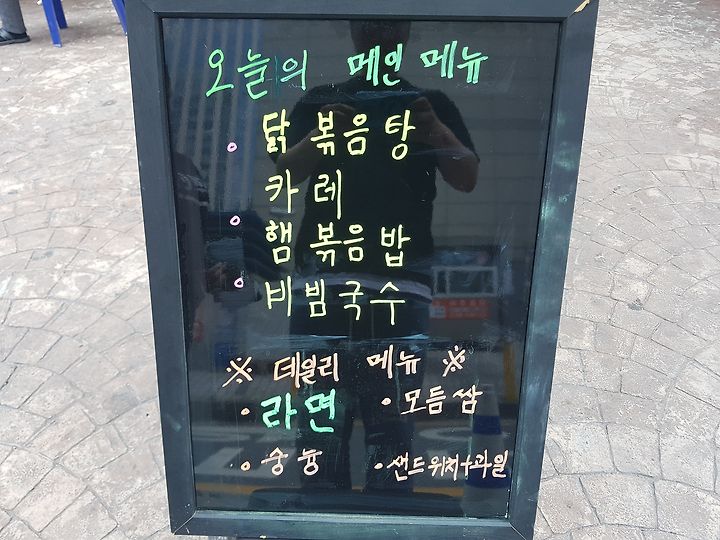 오늘의 메인 메뉴
닭볶음탕
카레
햄볶음밥
비빔국수
※ 데일리 메뉴 ※
• 라면 • 모듬쌈
• 숭늉 • 샌드위치+과일